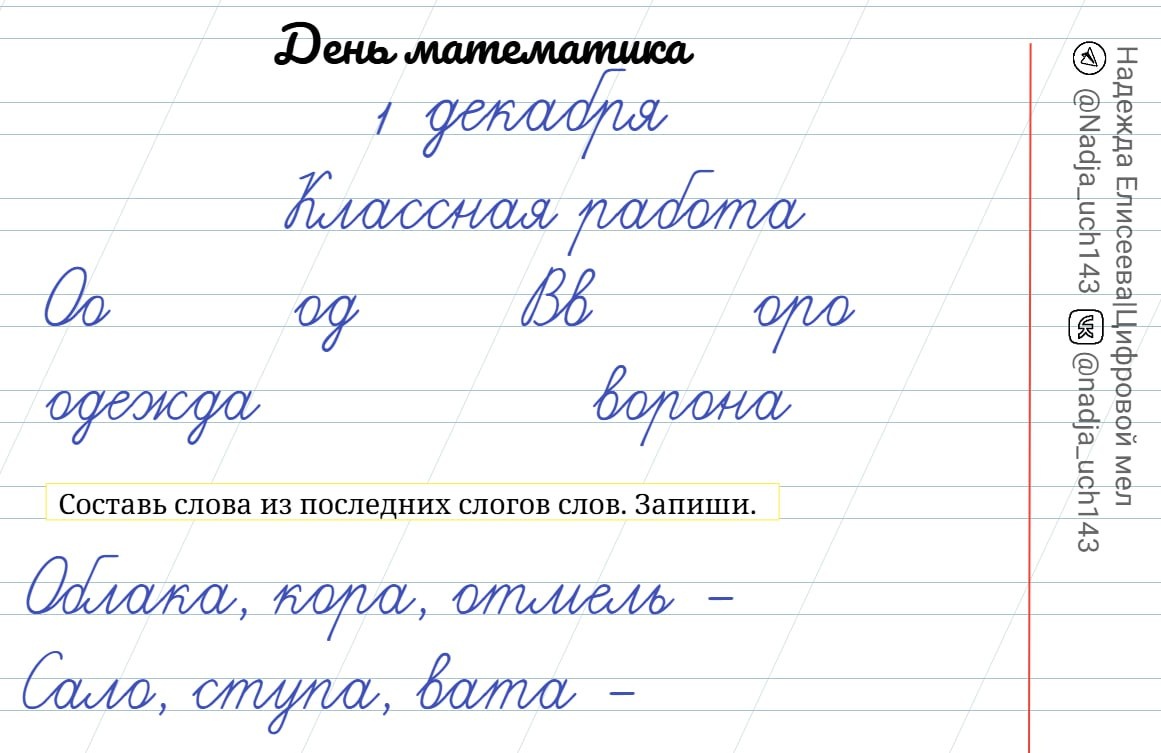 День математика
1 декабря
Классная работа
Оо од Вв оро
одежда ворона
Составь слова из последних слогов слов. Запиши.
Облака, кора, отмель –
Сало, ступа, вата –
Надежда Елисеева|Цифровой мел
@Nadja_uch143 @nadja_uch143